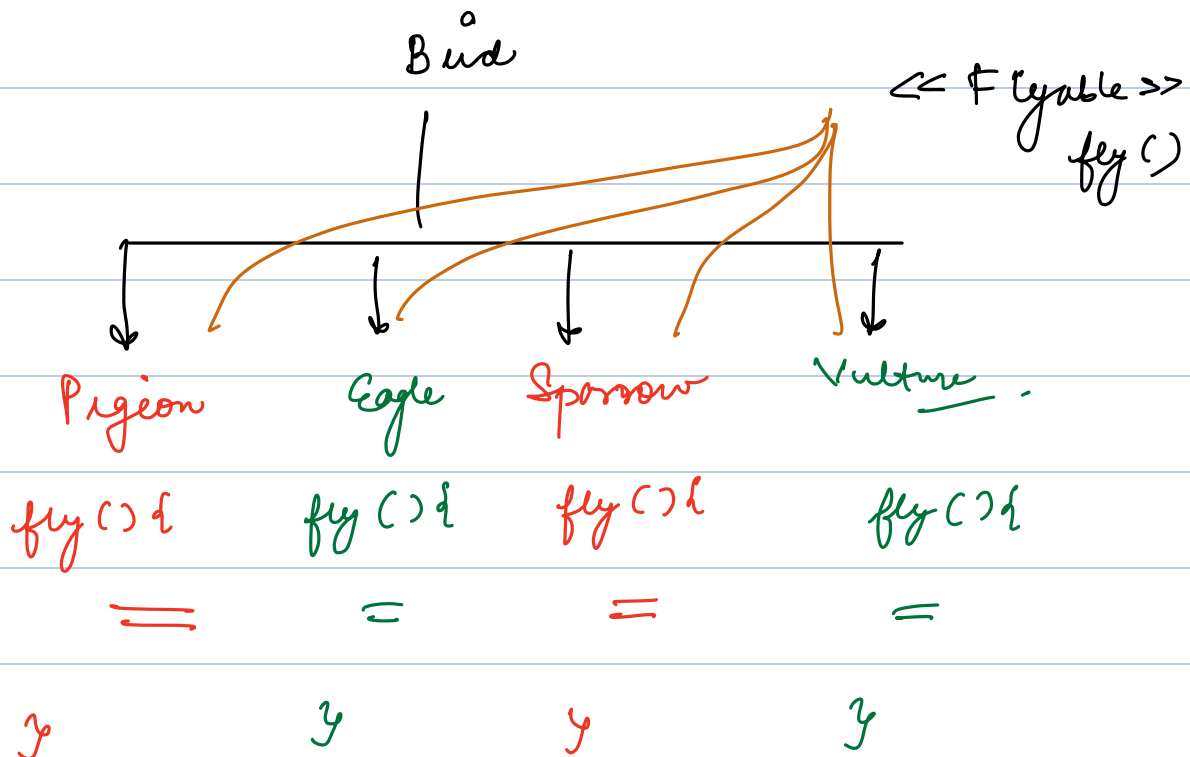 Bird
<< Flyable >>
fly ()
Pigeon Eagle Sparrow Vulture
fly () { fly () { fly () { fly () {
= = = =
} } } }